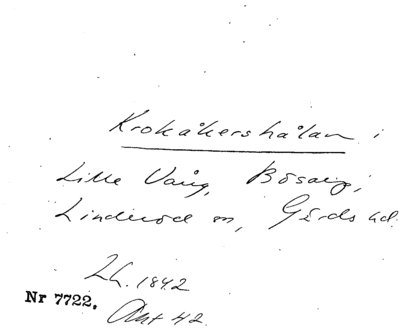 Krokåkershålan i
Lille Vång, Bösarp,
Linderöd sn, Gärds hd.
Lh. 1842
Nr 7722. Akt 42.